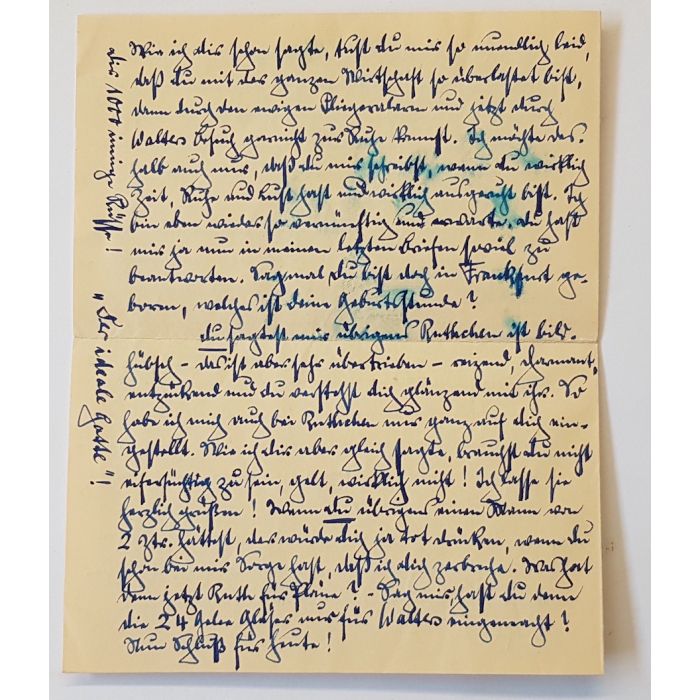 Wie ich dir schon sagte, tust du mir so unendlich leid,
daß du mit der ganzen Wirtschaft so überlastet bist,
dann durch den ewigen Fliegeralarm und jetzt durch
Walters Besuch garnicht zur Ruhe kommst. Ich möchte des-
halb auch nur, daß du mir schreibst, wenn du wirklich
Zeit, Ruhe und Lust hast und wirklich ausgeruht bist. Ich
bin eben wieder so vernünftig und erwarte. du hast
mir ja nun in meinen letzten Briefen soviel zu
beantworten. Sag mal du bist doch in Frankfurt ge-
boren, welches ist deine Geburtsstunde?
du sagtest mir übrigens Ruthchen ist bild-
hübsch - das ist aber sehr übertrieben - reizend, charmant,
entzückend und du verstehst dich glänzend mit ihr. So
habe ich mich auch bei Ruthchen nur ganz auf dich ein-
gestellt. Wie ich dir aber gleich sagte, brauchst du nicht
eifersüchtig zu sein, gelt, wirklich nicht! Ich lasse sie
herzlich grüßen! Wenn du übrigens einen Mann von
2 Ztr. hättest, der würde dich ja tot drücken, wenn du
schon bei mir Sorge hast, daß ich dich zerbreche. Was hat
denn jetzt Ruth für Pläne? - Sag mir, hast du denn
die 24 Gelee Gläser nur für Walter eingemacht?
Nun Schluß für heute!
dir 1000 innige Küsse!
"Der ideale Gatte"!